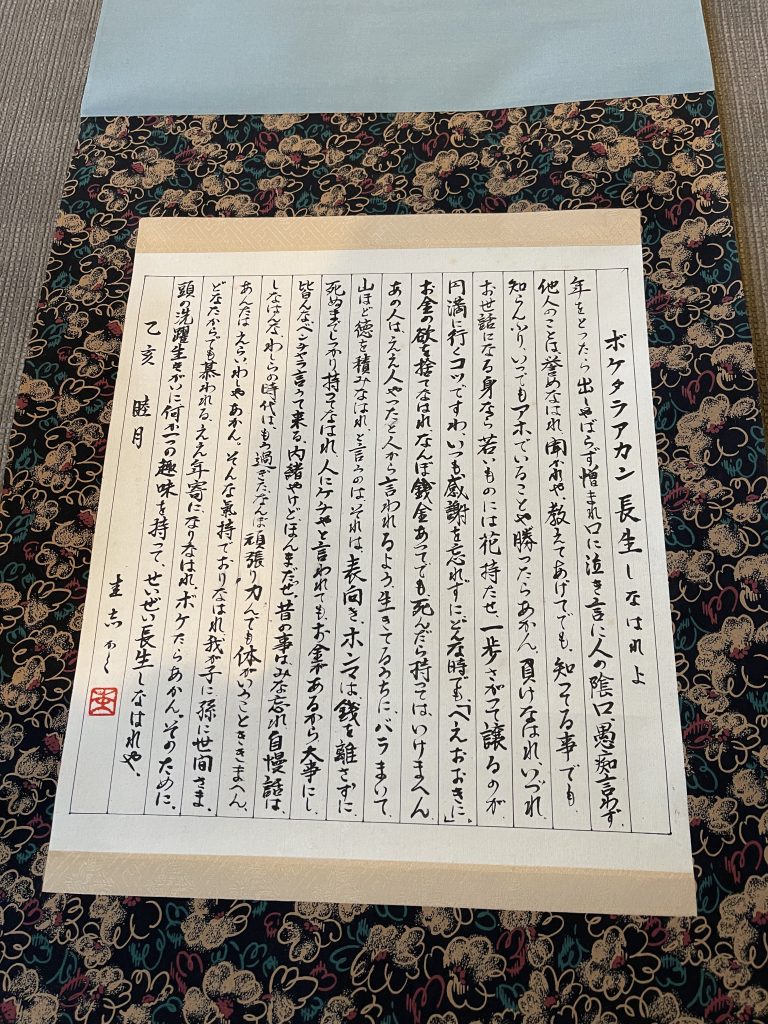 ボケタラアカン長生しなはれよ
年をとったら出しゃばらず、憎まれ口に泣き言に人の陰口愚痴言わず、
他人のことは、誉めなはれ、聞かれりゃ、教えてあげてでも、知ってる事でも、
知らんふり、いつでもアホでいることや勝ったらあかん、負けなはれ、いづれ、
お世話になる身なら若いものには花持たせ、一歩さがって譲るのが
円満に行くコツですわ、いつも感謝を忘れずにどんな時でも、「へえおおきに。」
お金の欲を捨てなはれ、なんぼ銭金あってでも死んだら持っては、いけまへん
あの人は、ええ人やったと人から言われるよう、生きてるうちに、バラまいて、
山ほど徳を積みなはれ、と言うのは、それは、表向き、ホンマは、銭を離さずに、
死ぬまでしっかり持ってなはれ、人にケチやと言われても、お金があるから大事にし、
皆んなベンチャラ言うて来る、内諸やけどほんまだぜ、昔の事はみな忘れ自慢話は、
しなはんな、わしらの時代は、もう過ぎた、なんぼ頑張り力んでも体がいうこときまへん、
あんたはえらい、わしゃあかん、そんな気持でおりなはれ、我が子に孫に世間さま、
どなたからでも慕われる、ええ年寄になりなはれ、ボケたらあかん、そのために、
頭の洗躍生きがいに何か一つ趣味を持って、せいぜい長生しなはれや、
乙亥 睦月
圭志かく